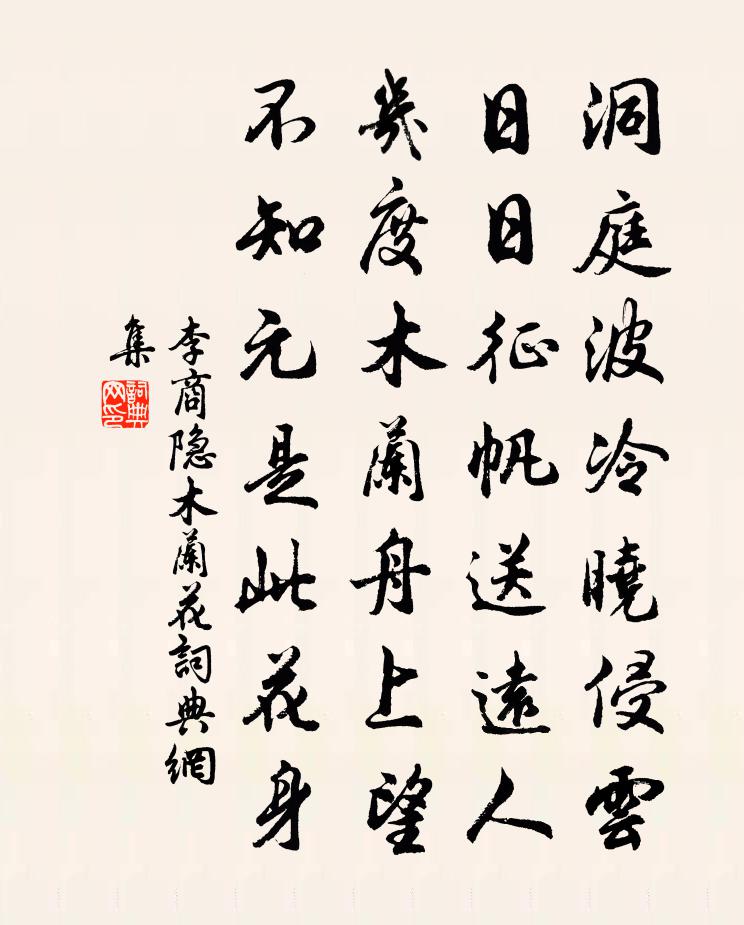 洞庭波冷曉侵雲
日日征帆送遠人
幾度木蘭舟上望
不知元是此花身
李商隐木蘭花詞典網
集
詞典
网印